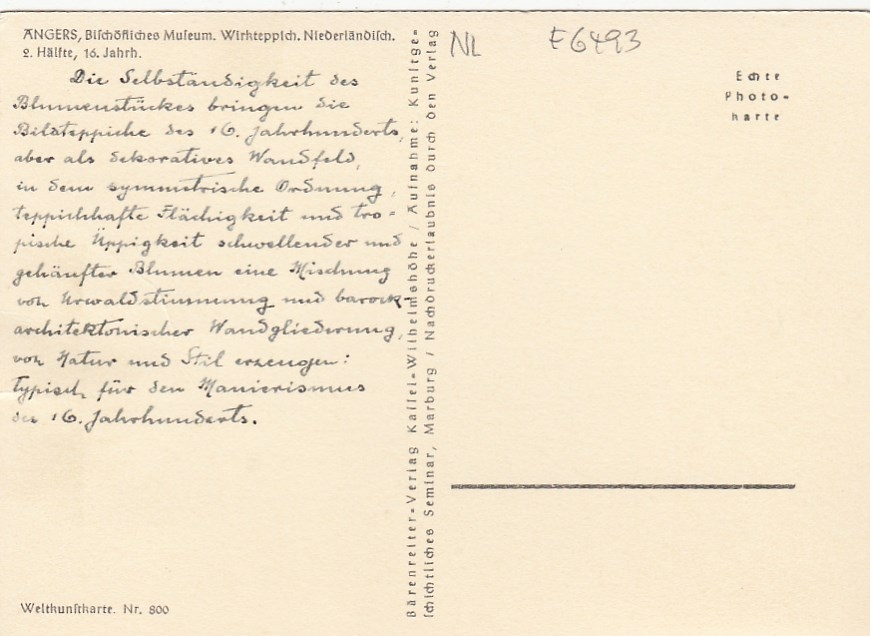 ANGERS, Biſchöfliches Muſeum. Wirkteppich. Niederländiſch.
2. Hälfte, 16. Jahrh.
Die Selbständigkeit des
Blumenstückes bringen die
Bildteppiche des 16. Jahrhunderts,
aber als dekoratives Wandfeld,
in dem symmetrische Ordnung,
teppichhafte Flächigkeit und tro=
pische Üppigkeit schwellender und
gehäufter Blumen eine Mischung
von Urwaldstimmung und barock-
architektonischer Wandgliederung,
von Natur und Stil erzeugen:
typisch für den Manierismus
des 16. Jahrhunderts.
Weltkunſtkarte. Nr. 800
Bärenreiter=Verlag Kaſſel=Wilhelmshöhe / Aufnahme: Kunſtge=
ſchichtliches Seminar, Marburg / Nachdruckerlaubnis durch den Verlag
NL F6493
Echte
Photo=
karte